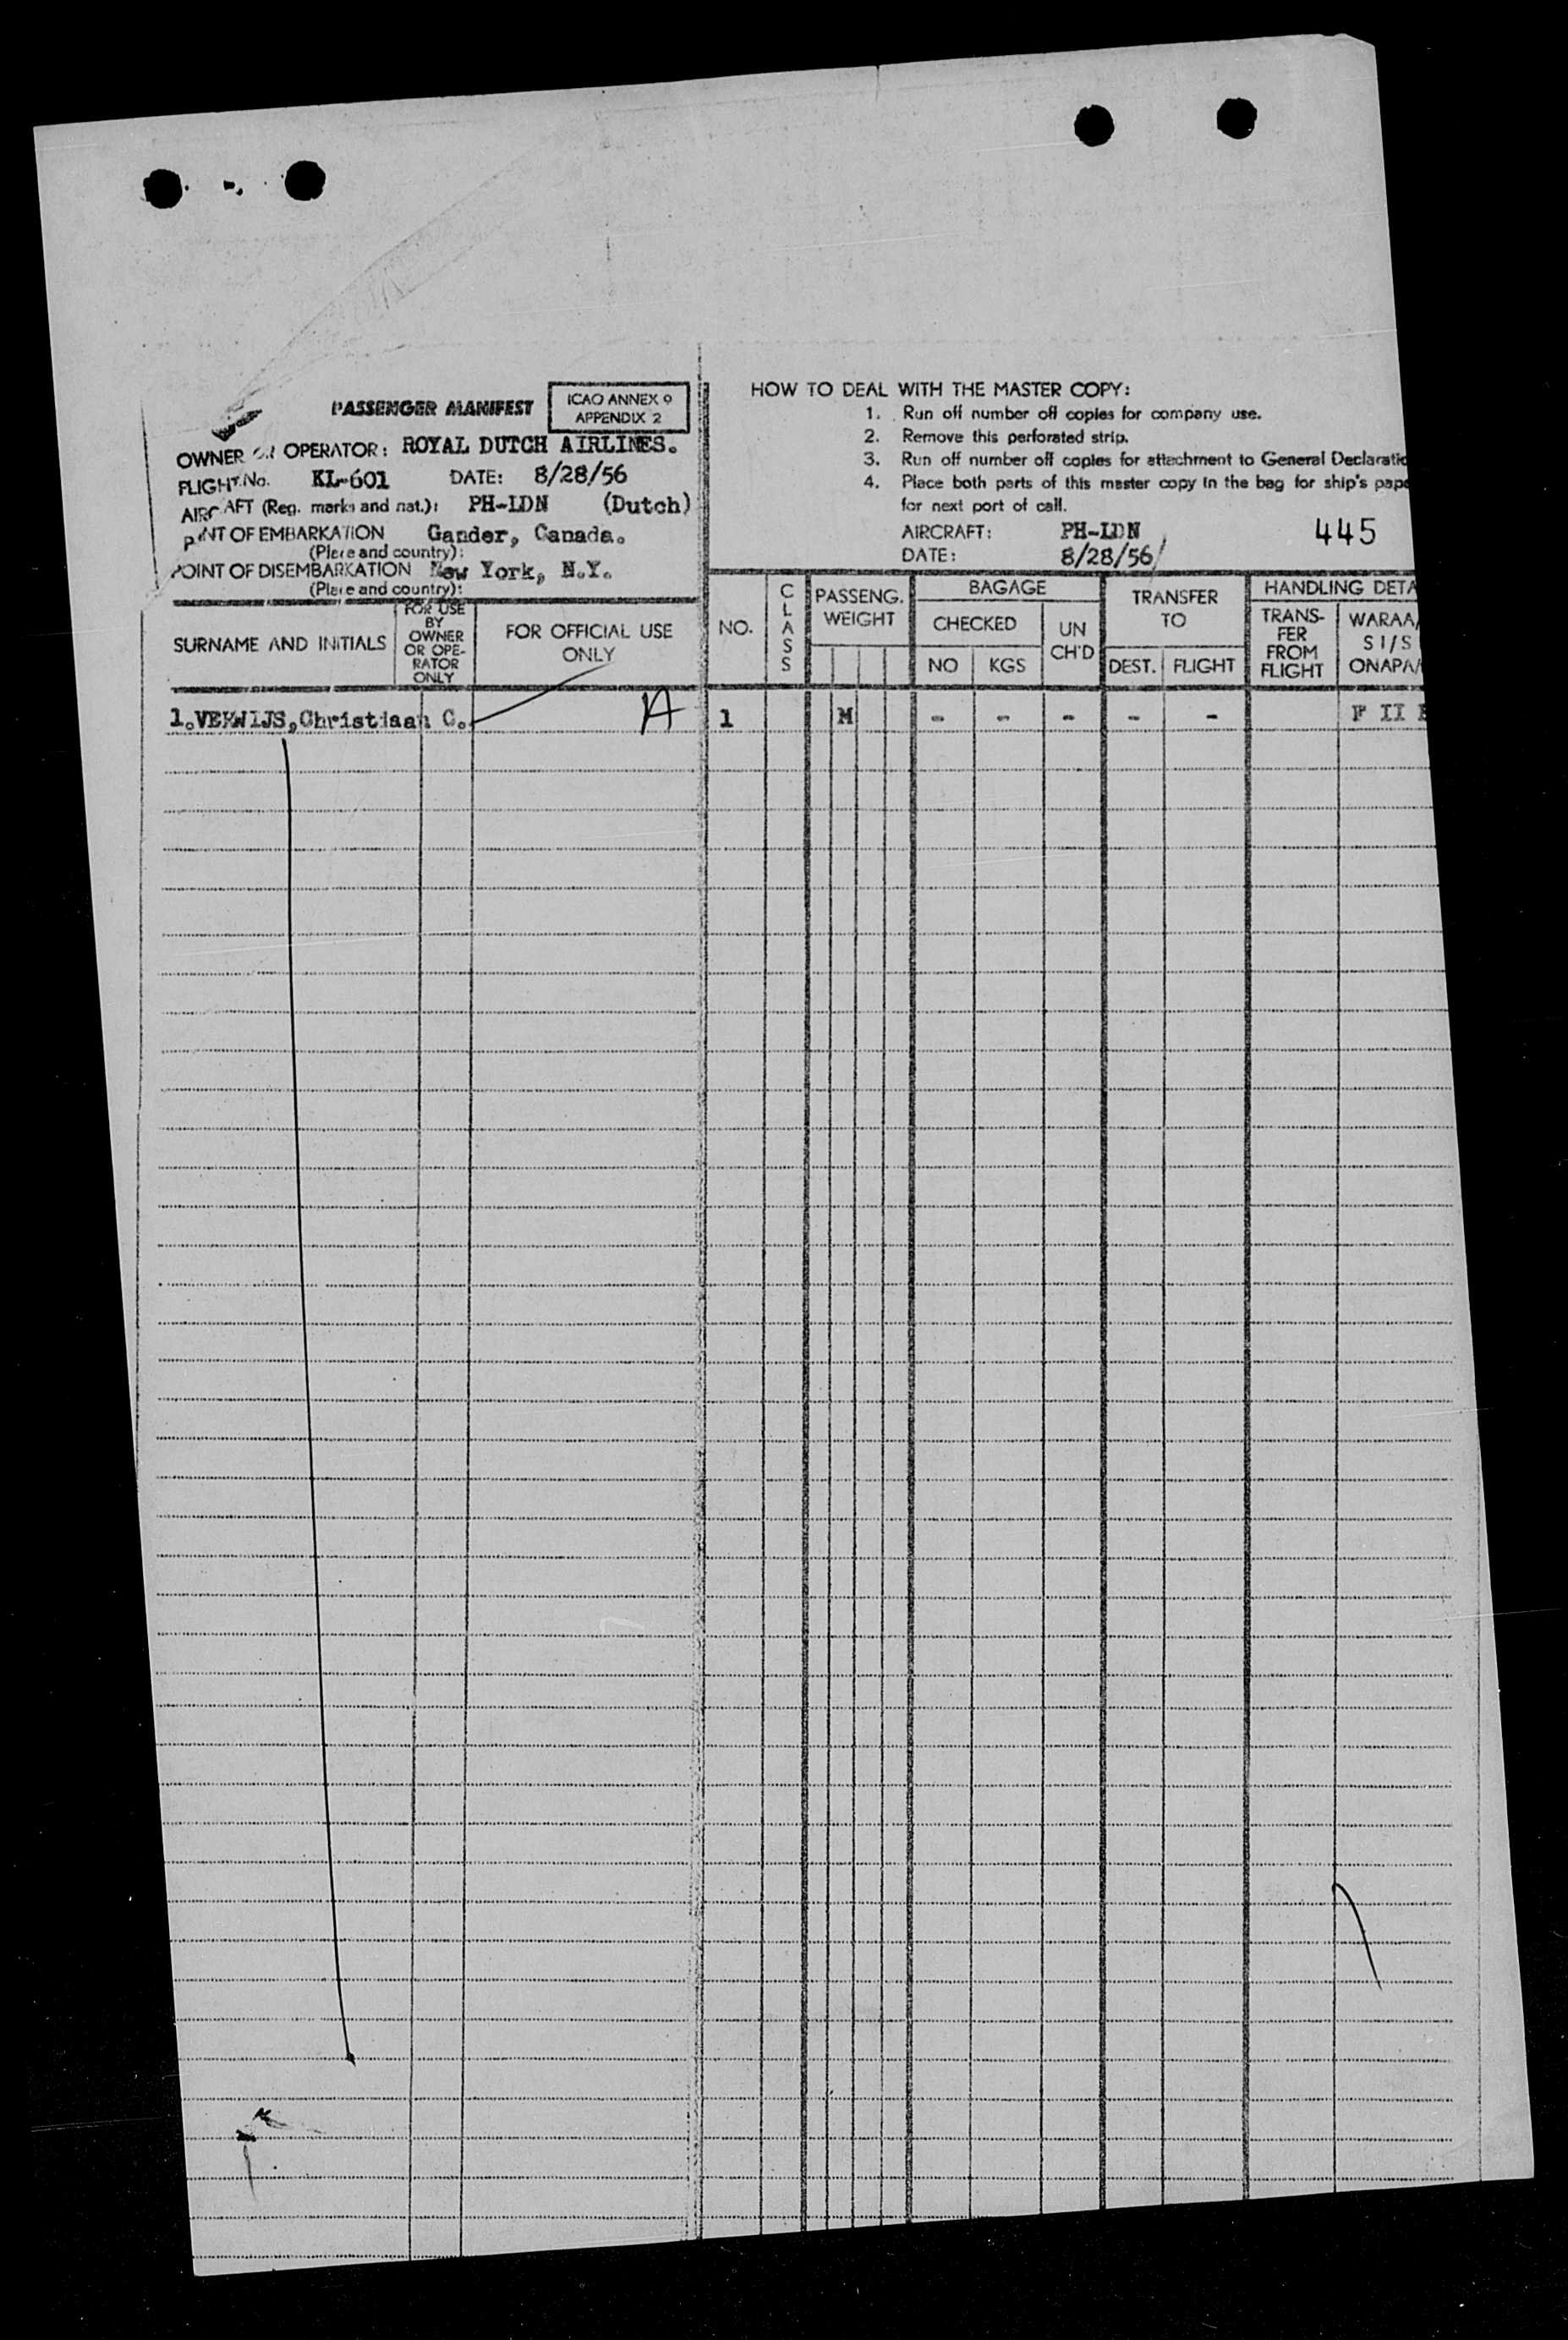 PASSENGER MANIFEST
ICAO ANNEX 9
APPENDIX 2
OWNER OR OPERATOR: ROYAL DUTCH AIRLINES.
FLIGHT No. KL-601 DATE: 8/28/56
AIRCRAFT (Reg. marks and nat.): PH-LDN (Dutch)
POINT OF EMBARKATION Gander, Canada.
(Place and country):
POINT OF DISEMBARKATION New York, N.Y.
(Place and country):
HOW TO DEAL WITH THE MASTER COPY:
1. Run off number off copies for company use.
2. Remove this perforated strip.
3. Run off number off copies for attachment to General Declaratio
4. Place both parts of this master copy in the bag for ship's pape
for next port of call.
AIRCRAFT: PH-LDN
DATE: 8/28/56
445
SURNAME AND INITIALS
FOR USE
BY
OWNER
OR OPE-
RATOR
ONLY
FOR OFFICIAL USE
ONLY
NO.
CLASS
PASSENG.
WEIGHT
BAGAGE
CHECKED
NO KGS
UN
CH'D
TRANSFER
TO
DEST. FLIGHT
HANDLING DETA
TRANS-
FER
FROM
FLIGHT
WARAA/
SI/S
ONAPA/
1. VERWIJS, Christiaan C. A 1 M - - - - - F II